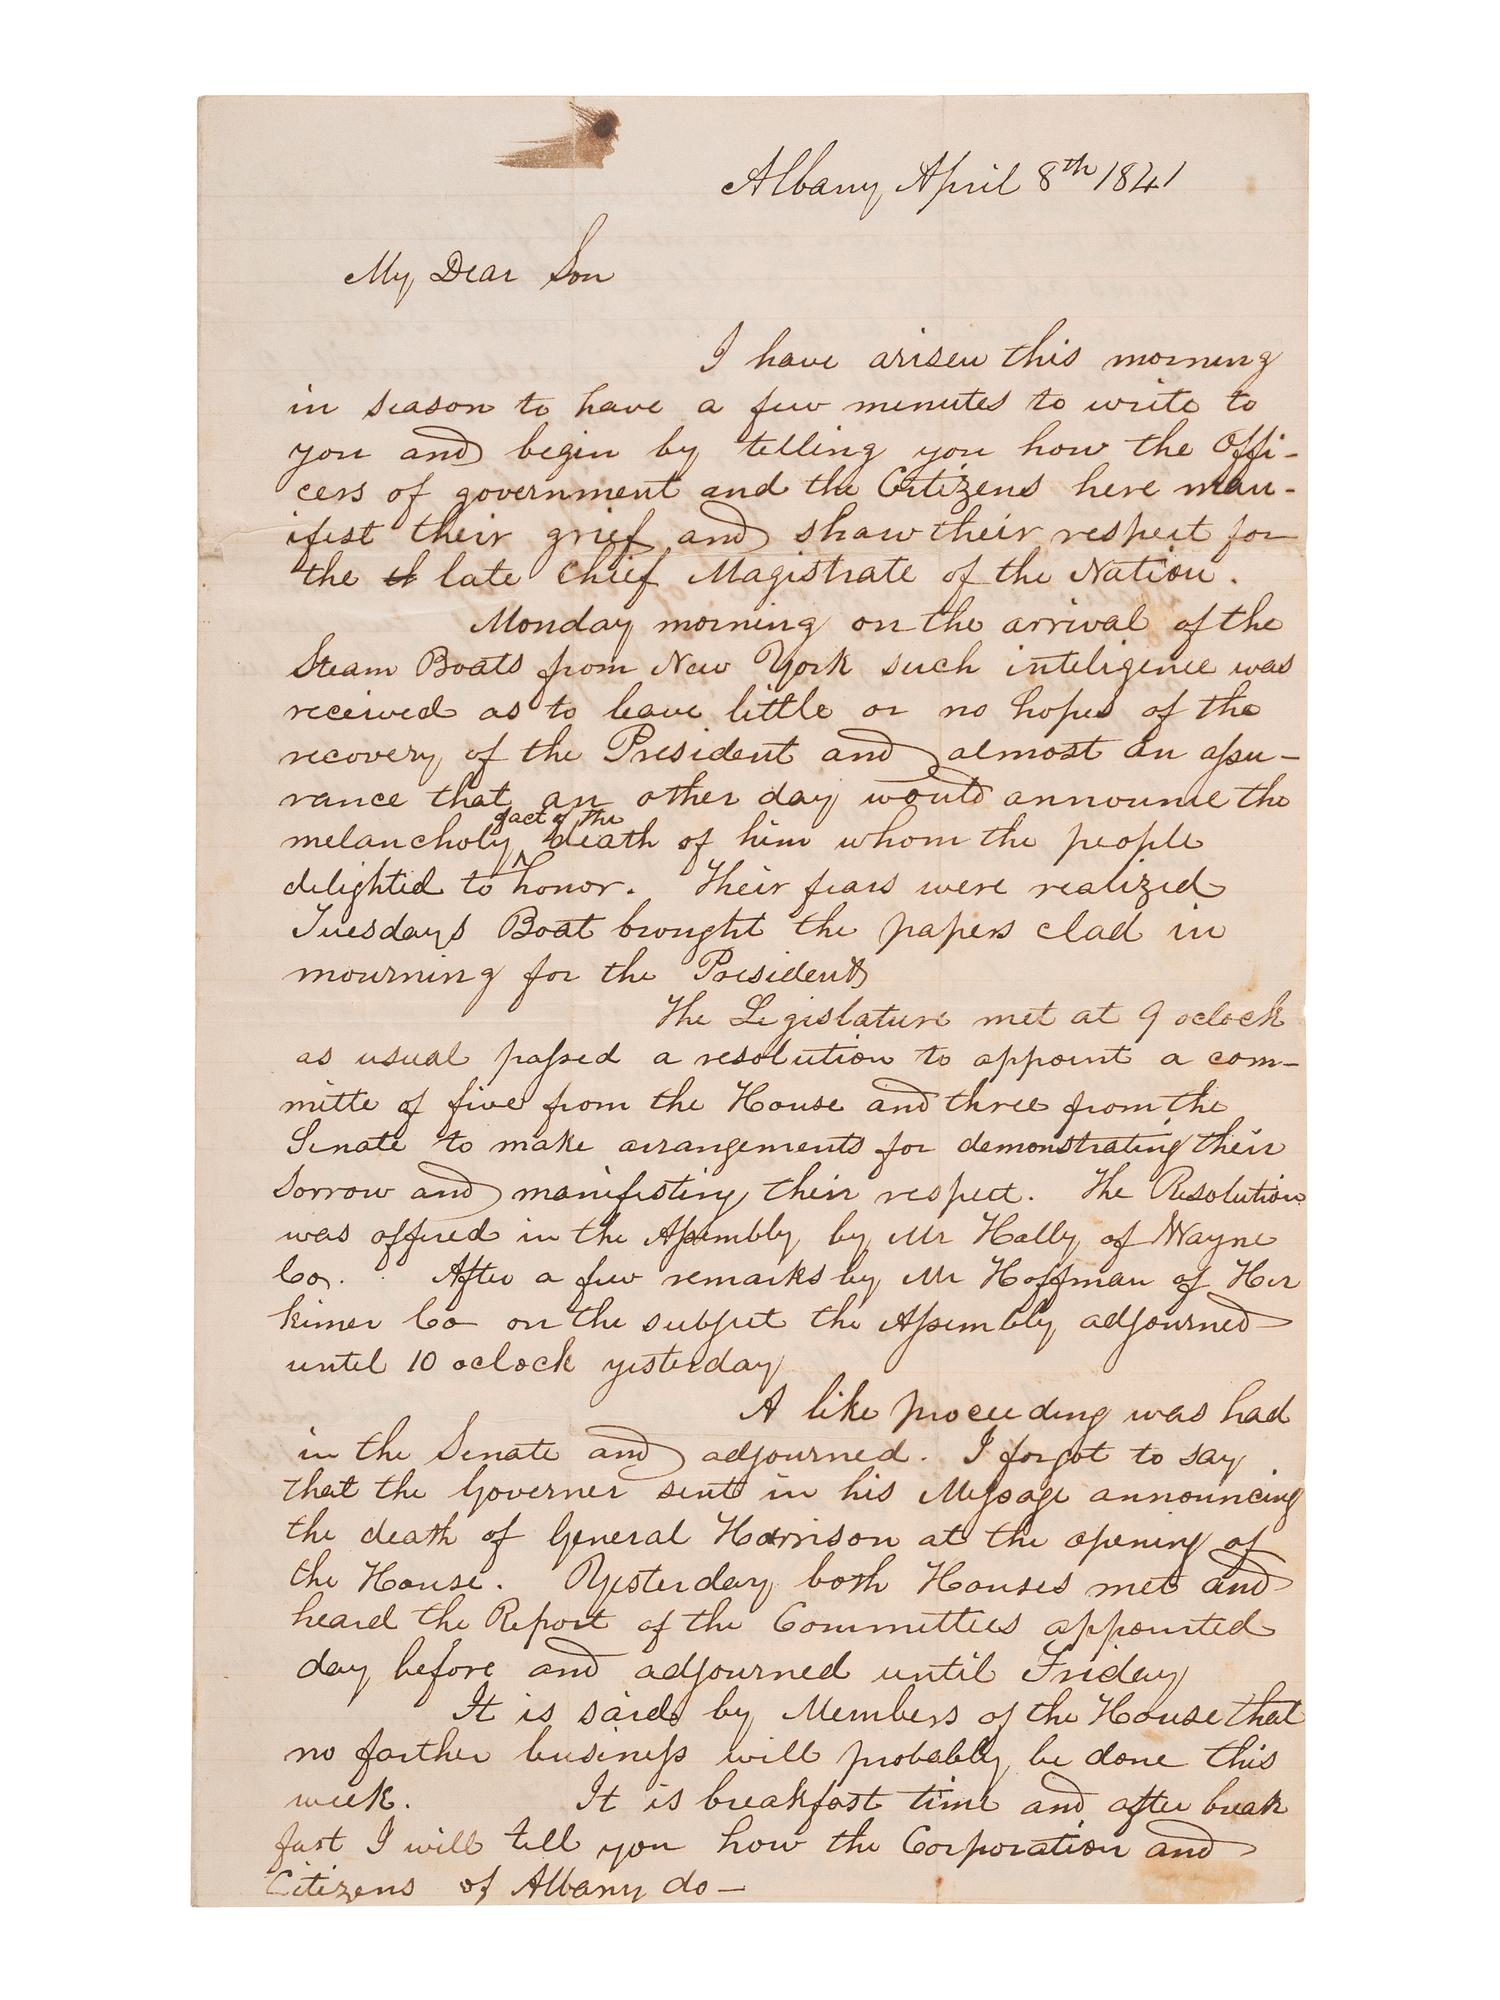 Albany April 8th 1841
My Dear Son
I have arisen this morning
in season to have a few menutes to write to
you and begin by telling you how the Offi-
cers of government and the Citizens here man-
ifest their grief and shaw their respect for
the th late Chief Magistrate of the Nation.
Monday morning on the arrival of the
Steam Boats from New York such inteligence was
received as to leave little or no hopes of the
recovery of the President and almost an assu-
rance that an other day would announce the
fact of the
melancholy ^ death of him whom the people
delighted to honor. Their fears were realized
Tuesdays Boat brought the papers clad in
mourning for the President
The Legislature met at 9 oclock
as usual passed a resolution to appoint a com-
mitte of five from the House and three from the
Senate to make arrangements for demonstrating their
sorrow and manifesting their respect. The Resolution
was offered in the Assembly by Mr Holly of Wayne
Co. After a few remarks by Mr Hoffman of Her
kimer Co on the subject the Assembly adjourned
until 10 oclock yesterday
A like proceeding was had
in the Senate and adjourned. I forgot to say
that the Governer sent in his Message announcing
the death of General Harrison at the opening of
the House. Yesterday both Houses met and
heard the Report of the Committees appointed
day before and adjourned until Friday
It is said by Members of the House that
no farther business will probably be done this
week. It is breakfast time and after break
fast I will tell you how the Corporation and
Citizens of Albany do —